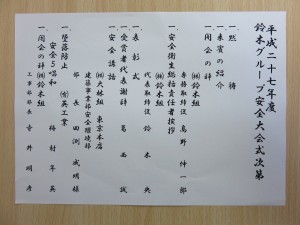 平成二十七年度
鈴木グループ安全大会式次第
一 黙祷
一 来賓の紹介
一 開会の辞
㈱鈴木組
専務取締役 鳥野 伸一郎
一 安全衛生総括責任者挨拶
㈱鈴木組
代表取締役 鈴木 央
一 表彰式
一 受賞者代表謝辞 葛西 誠
一 安全講話
㈱大林組 東京本店
建築事業部安全環境部
部長 長田 渕 成明 様
一 墜落防止 ㈲英工業
安全5唱和 梅村 年英
一 閉会の辞 ㈱鈴木組
工事部部長 幸井 明彦